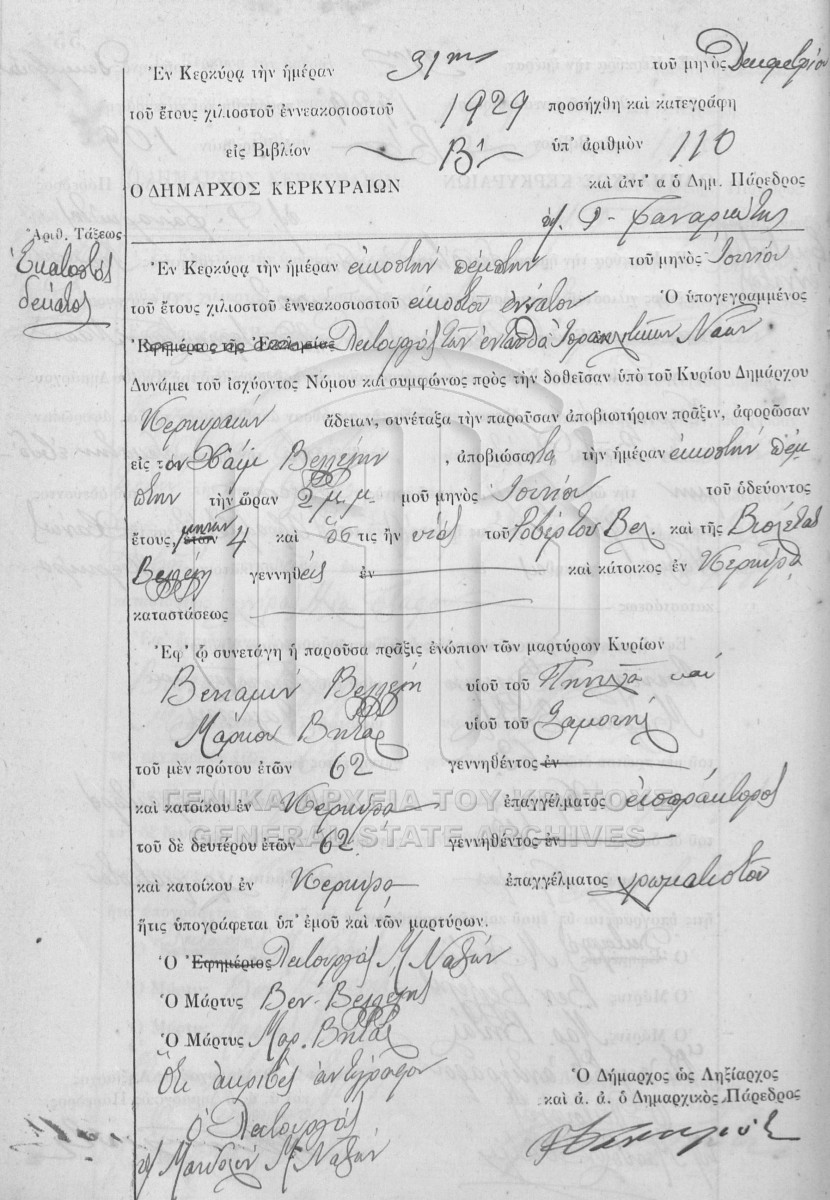 Ἐν Κερκύρᾳ τὴν ἡμέραν 31ην τοῦ μηνὸς Δεκεμβρίου
τοῦ ἔτους χιλιοστοῦ ἐννεακοσιοστοῦ 1929 προσήχθη καὶ κατεγράφη
εἰς Βιβλίον Β1 ὑπ' ἀριθμὸν 110
Ο ΔΗΜΑΡΧΟΣ ΚΕΡΚΥΡΑΙΩΝ καὶ ἀντ' α ὁ Δημ. Πάρεδρος
Ἀριθ. Τάξεως
Ἑκατοστὸς
δέκατος
Ἐν Κερκύρᾳ τὴν ἡμέραν εἰκοστὴν πέμπτην τοῦ μηνὸς Ἰουνίου
τοῦ ἔτους χιλιοστοῦ ἐννεακοσιοστοῦ εἰκοστοῦ ἐννάτου Ὁ ὑπογεγραμμένος
Λειτουργὸς τῶν ἐνταῦθα Ἰσραηλιτικῶν Ναῶν
Δυνάμει τοῦ ἰσχύοντος Νόμου καὶ συμφώνως πρὸς τὴν δοθεῖσαν ὑπὸ τοῦ Κυρίου Δημάρχου
Κερκυραίων ἄδειαν, συνέταξα τὴν παροῦσαν ἀποβιωτήριον πρᾶξιν, ἀφορῶσαν
εἰς τὸν Χαΐμ Βελλέλη, ἀποβιώσαντα τὴν ἡμέραν εἰκοστὴν πέμ
πτην τὴν ὥραν 2 μ.μ. μοῦ μηνὸς Ἰουνίου τοῦ ὁδεύοντος
ἔτους, ἐτῶν μηνῶν 4 καὶ ὅστις ἦν υἱὸς τοῦ Ροβέρτου Βελ. καὶ τῆς Βιολέτας
Βελλέλη γεννηθεὶς ἐν καὶ κάτοικος ἐν Κερκύρᾳ
καταστάσεως
Ἐφ' ᾧ συνετάγη ἡ παροῦσα πρᾶξις ἐνώπιον τῶν μαρτύρων Κυρίων
Βενιαμὶν Βελλέλη υἱοῦ τοῦ καὶ
Μάρκου Βιτάλ υἱοῦ τοῦ Σαμουὴλ
τοῦ μὲν πρώτου ἐτῶν 62 γεννηθέντος ἐν
καὶ κατοίκου ἐν Κερκύρᾳ ἐπαγγέλματος εἰσπράκτορος
ΓΕΝΙΚΑ ΑΡΧΕΙΑ ΤΟΥ ΚΡΑΤΟΥΣ
GENERAL STATE ARCHIVES
τοῦ δὲ δευτέρου ἐτῶν 62 γεννηθέντος ἐν
καὶ κατοίκου ἐν Κερκύρᾳ ἐπαγγέλματος χρωματιστοῦ
ἥτις ὑπογράφεται ὑπ' ἐμοῦ καὶ τῶν μαρτύρων.
Ὁ Ἐφημέριος Λειτουργὸς Μ Ναξών
Ὁ Μάρτυς Βεν. Βελλέλης
Ὁ Μάρτυς Μαρ. Βιτάλ
Ὅτι ἀκριβὲς ἀντίγραφον
Ὁ Δήμαρχος ὡς Ληξίαρχος
καὶ ἀ. ἀ. ὁ Δημαρχικὸς Πάρεδρος
ὁ Λειτουργὸς